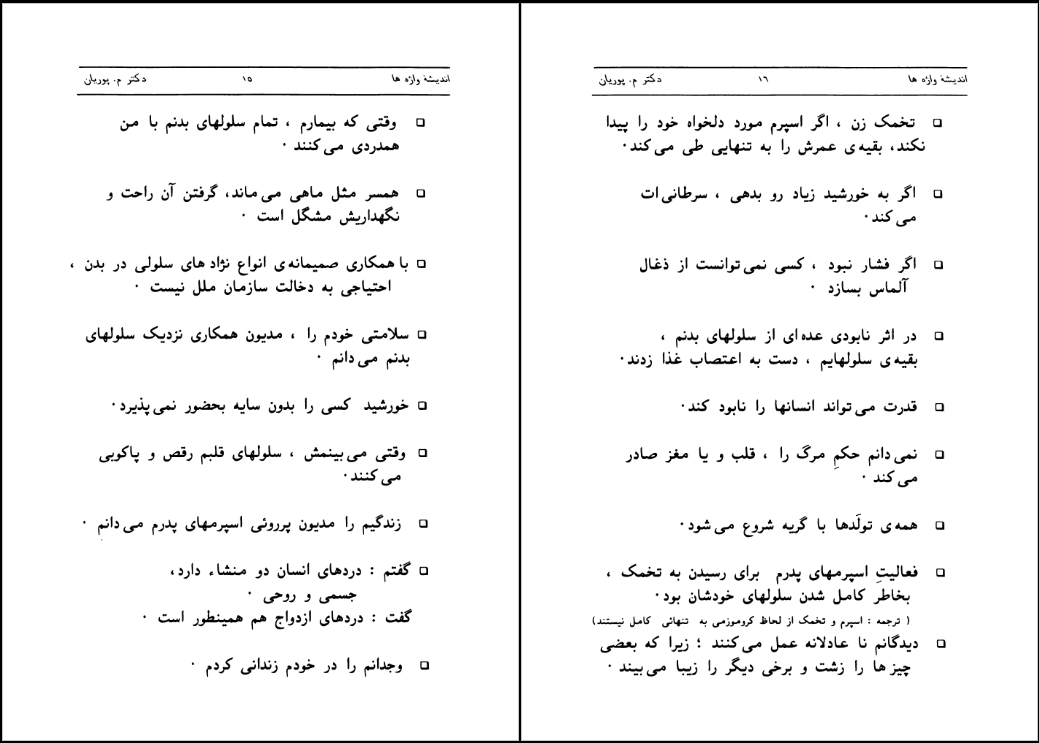 اندیشهٔ واژه ها ۱۶ دکتر م. پوریان
□ تخمک زن ، اگر اسپرم مورد دلخواه خود را پیدا
نکند، بقیه‌ی عمرش را به تنهایی طی می‌کند.
□ اگر به خورشید زیاد رو بدهی ، سرطانی‌ات
می‌کند.
□ اگر فشار نبود ، کسی نمی‌توانست از ذغال
آلماس بسازد .
□ در اثر نابودی عده‌ای از سلولهای بدنم ،
بقیه‌ی سلولهایم ، دست به اعتصاب غذا زدند.
□ قدرت می‌تواند انسانها را نابود کند.
□ نمی‌دانم حکمِ مرگ را ، قلب و یا مغز صادر
می‌کند .
□ همه‌ی تولّدها با گریه شروع می‌شود.
□ فعالیتِ اسپرمهای پدرم برای رسیدن به تخمک ،
بخاطر کامل شدن سلولهای خودشان بود.
( ترجمه : اسپرم و تخمک از لحاظ کروموزمی به تنهائی کامل نیستند)
□ دیدگانم نا عادلانه عمل می‌کنند ؛ زیرا که بعضی
چیزها را زشت و برخی دیگر را زیبا می‌بیند .
اندیشهٔ واژه ها ۱۵ دکتر م. پوریان
□ وقتی که بیمارم ، تمام سلولهای بدنم با من
همدردی می‌کنند .
□ همسر مثل ماهی می‌ماند، گرفتن آن راحت و
نگهداریش مشگل است .
□ با همکاری صمیمانه‌ی انواع نژادهای سلولی در بدن ،
احتیاجی به دخالت سازمان ملل نیست .
□ سلامتی خودم را ، مدیون همکاری نزدیک سلولهای
بدنم می‌دانم .
□ خورشید کسی را بدون سایه بحضور نمی‌پذیرد.
□ وقتی می‌بینمش ، سلولهای قلبم رقص و پاکوبی
می‌کنند.
□ زندگیم را مدیون پرروئی اسپرمهای پدرم می‌دانم .
□ گفتم : دردهای انسان دو منشاء دارد،
جسمی و روحی .
گفت : دردهای ازدواج هم همینطور است .
□ وجدانم را در خودم زندانی کردم .